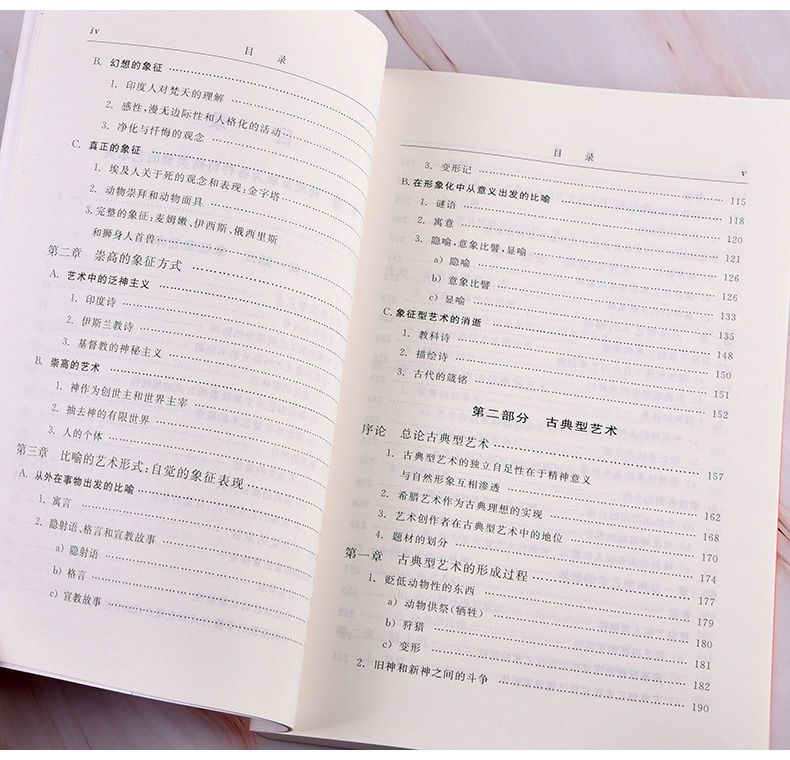 iv
目 录
B. 幻想的象征
1. 印度人对梵天的理解
2. 感性,漫无边际性和人格化的活动
3. 净化与忏悔的观念
C. 真正的象征
1. 埃及人关于死的观念和表现;金字塔
2. 动物崇拜和动物面具
3.完整的象征:麦姆嫩、伊西斯、俄西里斯
和狮身人首兽
第二章 崇高的象征方式
A. 艺术中的泛神主义
1. 印度诗
2. 伊斯兰教诗
3. 基督教的神秘主义
B. 崇高的艺术
1. 神作为创世主和世界主宰
2. 抽去神的有限世界
3. 人的个体
第三章 比喻的艺术形式:自觉的象征表现
A. 从外在事物出发的比喻
1. 寓言
2. 隐射语、格言和宣教故事
a) 隐射语
b) 格言
c) 宣教故事
目 录
v
3. 变形记 115
B. 在形象化中从意义出发的比喻 118
1. 谜语 120
2. 寓意 121
3. 隐喻,意象比譬,显喻 126
a) 隐喻 126
b) 意象比譬 133
c) 显喻 135
C. 象征型艺术的消逝 148
1. 教科诗 150
2. 描绘诗 151
3. 古代的箴铭 152
第二部分 古典型艺术
序论 总论古典型艺术 157
1. 古典型艺术的独立自足性在于精神意义
与自然形象互相渗透 162
2. 希腊艺术作为古典理想的实现 168
3. 艺术创作者在古典型艺术中的地位 170
4. 题材的划分 174
第一章 古典型艺术的形成过程 177
1. 贬低动物性的东西 179
a) 动物供祭(牺牲) 180
b) 狩猎 181
c) 变形 182
2. 旧神和新神之间的斗争 190